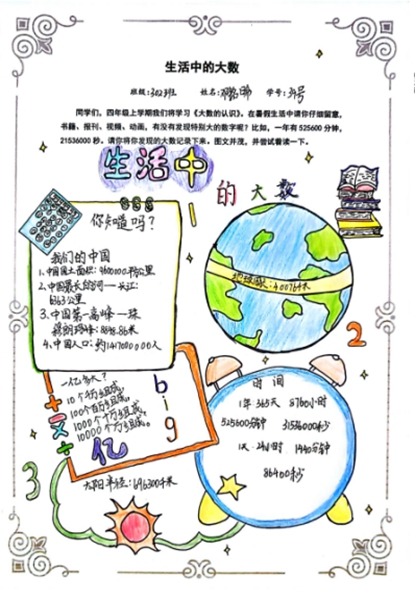 生活中的大数
班级:302班 姓名: 学号:31号
同学们,四年级上学期我们将学习《大数的认识》,在暑假生活中请你仔细留意,
书籍、报刊、视频、动画,有没有发现特别大的数字呢?比如,一年有525600分钟,
21536000秒。请你将你发现的大数记录下来。图文并茂,并尝试着读一下。
生活中
的大数
你知道吗?
我们的中国
1.中国国土面积:9600000平方公里
2.中国最长的河——长江:
6363公里
3.中国第一高峰—珠
穆朗玛峰:8848.86米
4.中国人口:约1417000000人
地球周长:40076米
1
2
一亿多大?
10个千万组成。
100个百万组成。
1000个十万组成。
10000个万组成。
亿
big
+
-
×
÷
时间
1年:365天 8760小时
525600分钟 31536000秒
1天:24小时 1440分钟
86400秒
3
太阳半径:696300千米